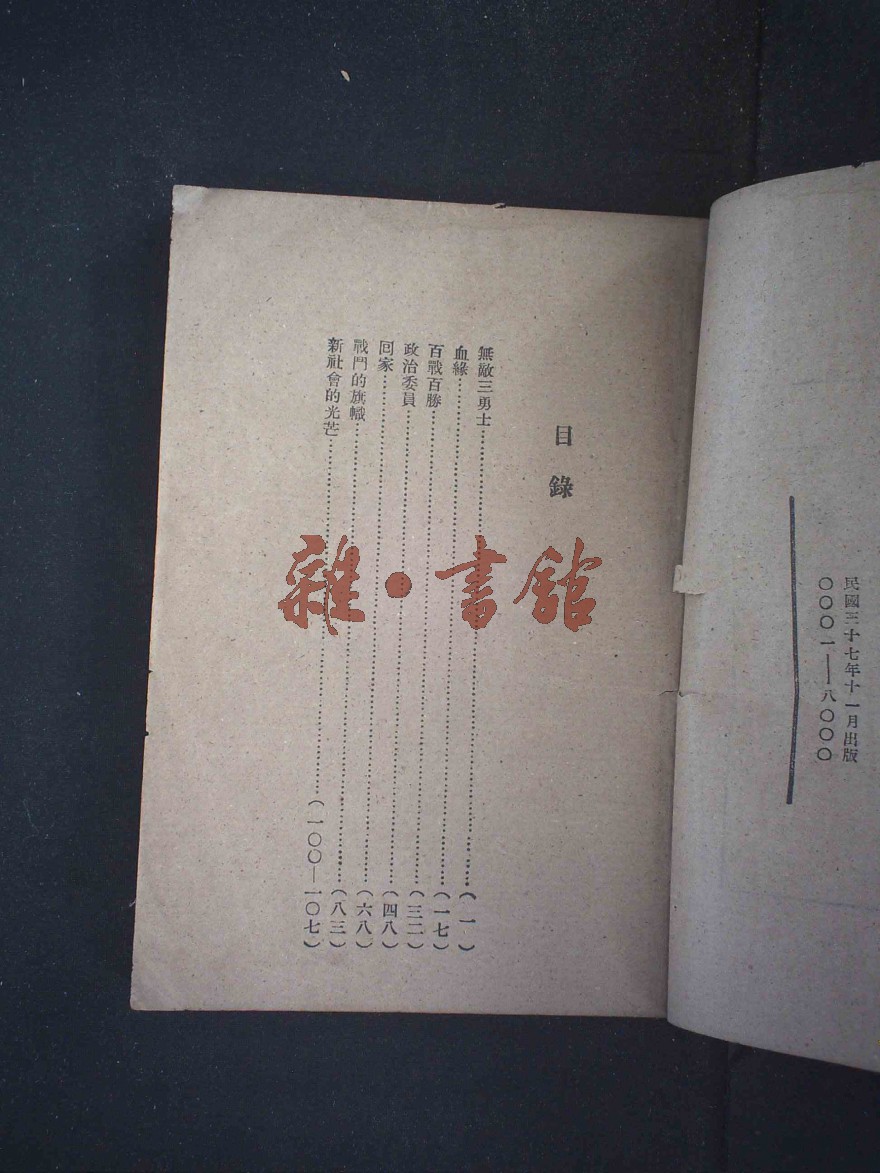 民國三十七年十一月出版
〇〇〇一——八〇〇〇
目錄
無敵三勇士……(一)
血緣……(一七)
百戰百勝……(三二)
政治委員……(四八)
回家……(六八)
戰鬥的旗幟……(八三)
新社會的光芒……(一〇〇—一〇七)
雜·書館